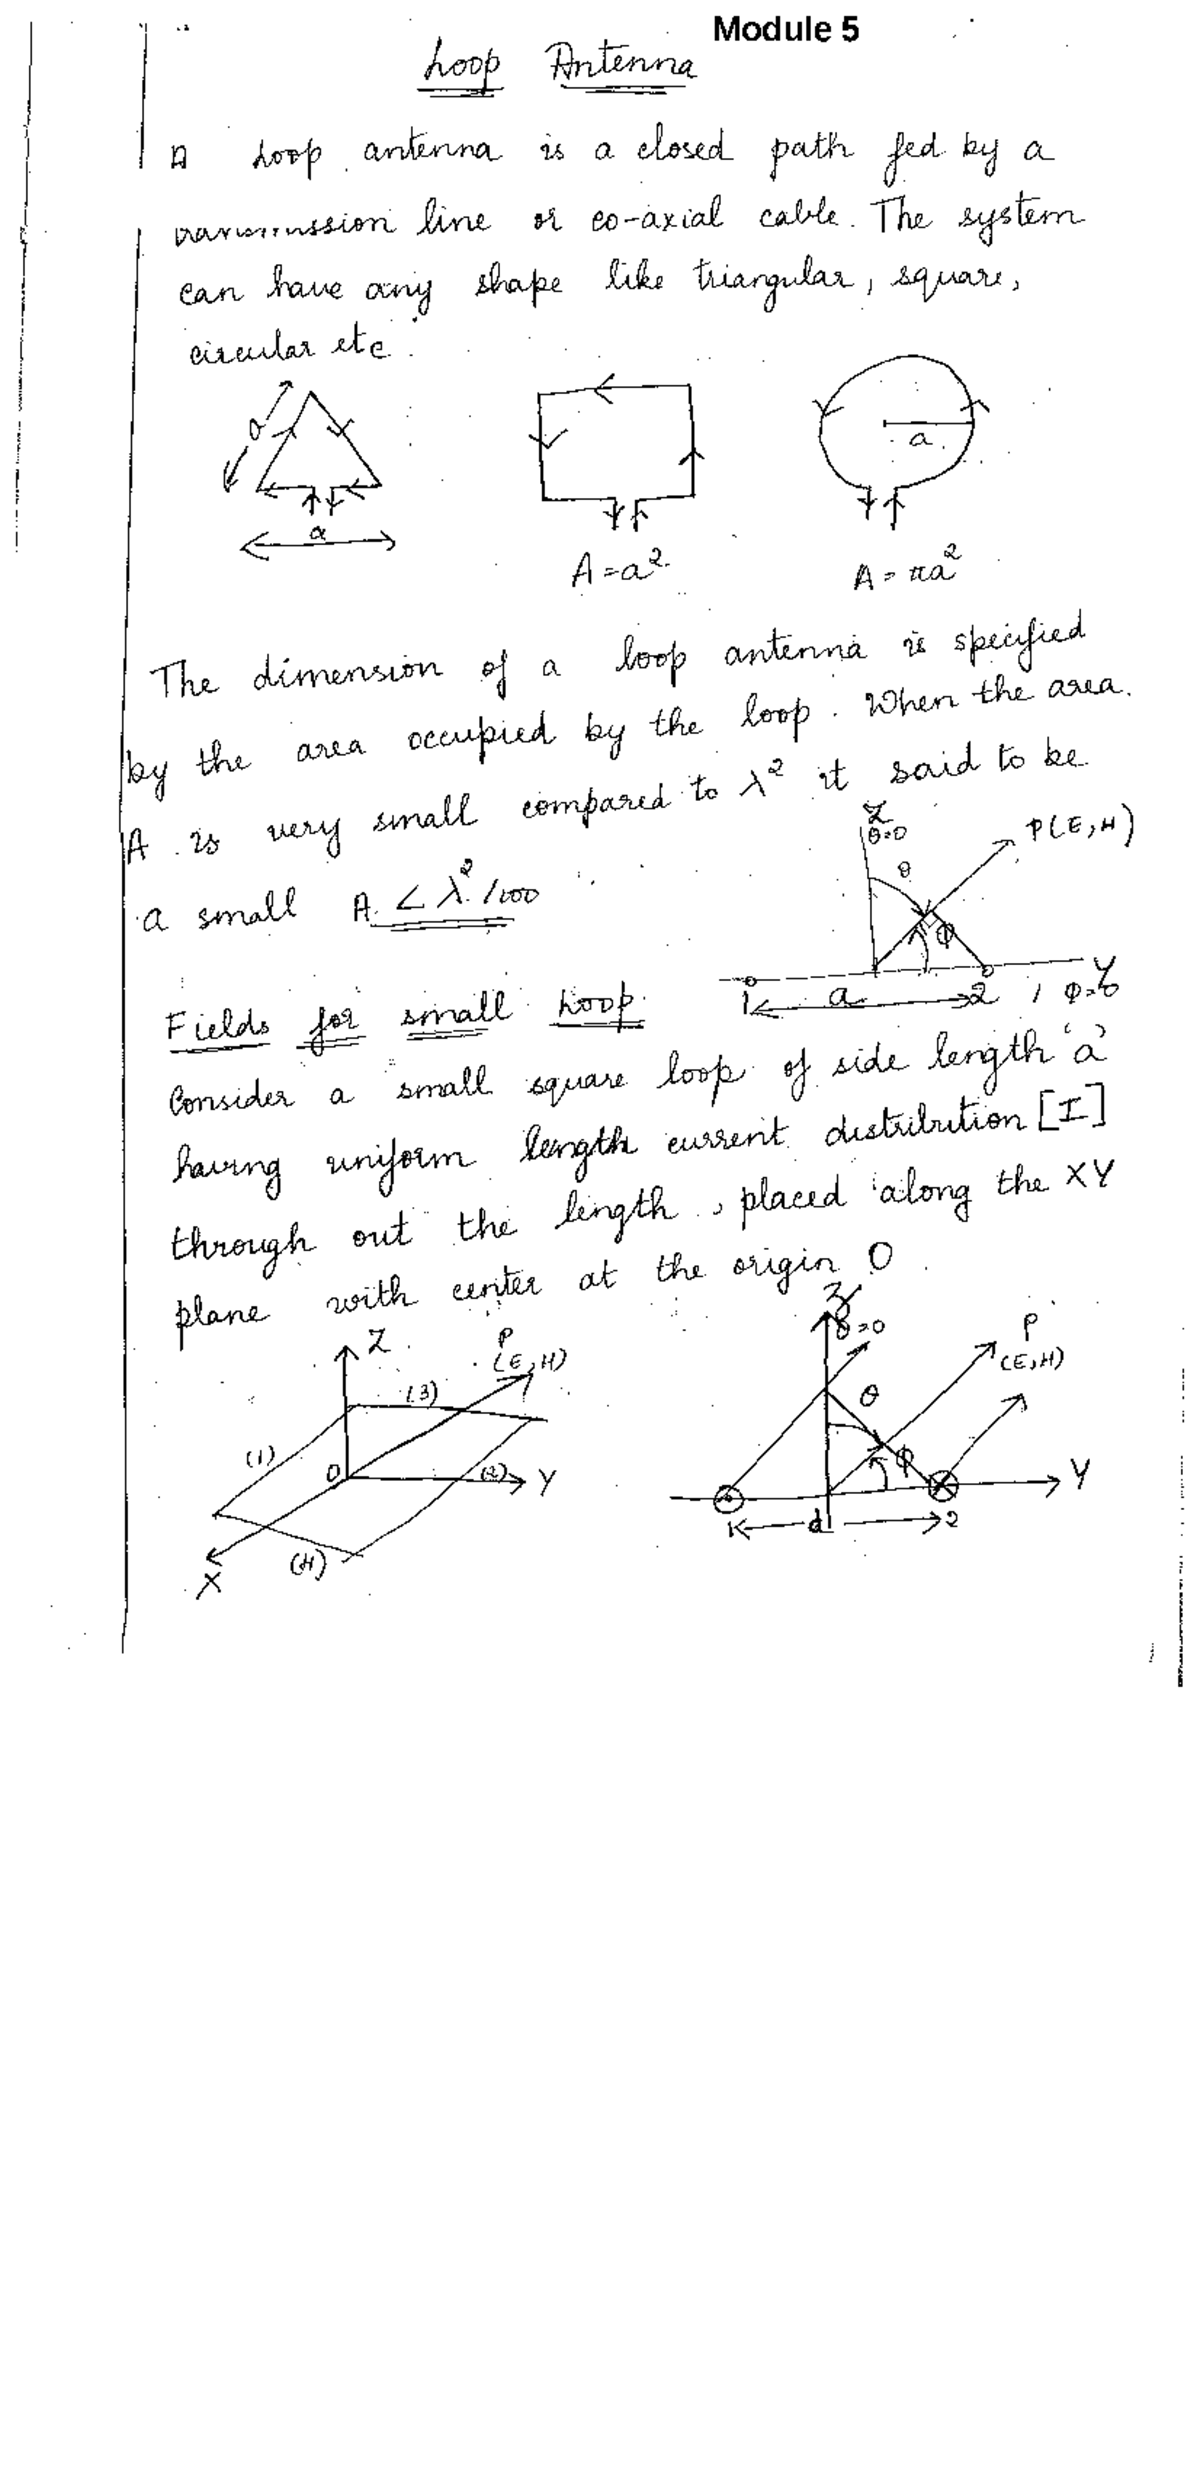 Module 5
Loop Antenna
A Loop antenna is a closed path fed by a
transmission line or co-axial cable. The system
can have any shape like triangular, square,
circular etc.
a
a
a
A=a²
A=πa²
The dimension of a loop antenna is specified
by the area occupied by the loop. When the area
A is very small compared to λ² it said to be
a small A < λ²/100
Z
θ=0
P(E,H)
θ
Φ
1 a 2
Y
Φ=0
Fields for small Loop
Consider a small square loop of side length 'a'
having uniform length current distribution [I]
through out the length, placed along the XY
plane with center at the origin O.
Z
P
(E,H)
(3)
(1)
O
(2)
Y
(4)
X
Z
θ=0
P
(E,H)
θ
Φ
Y
1 d 2